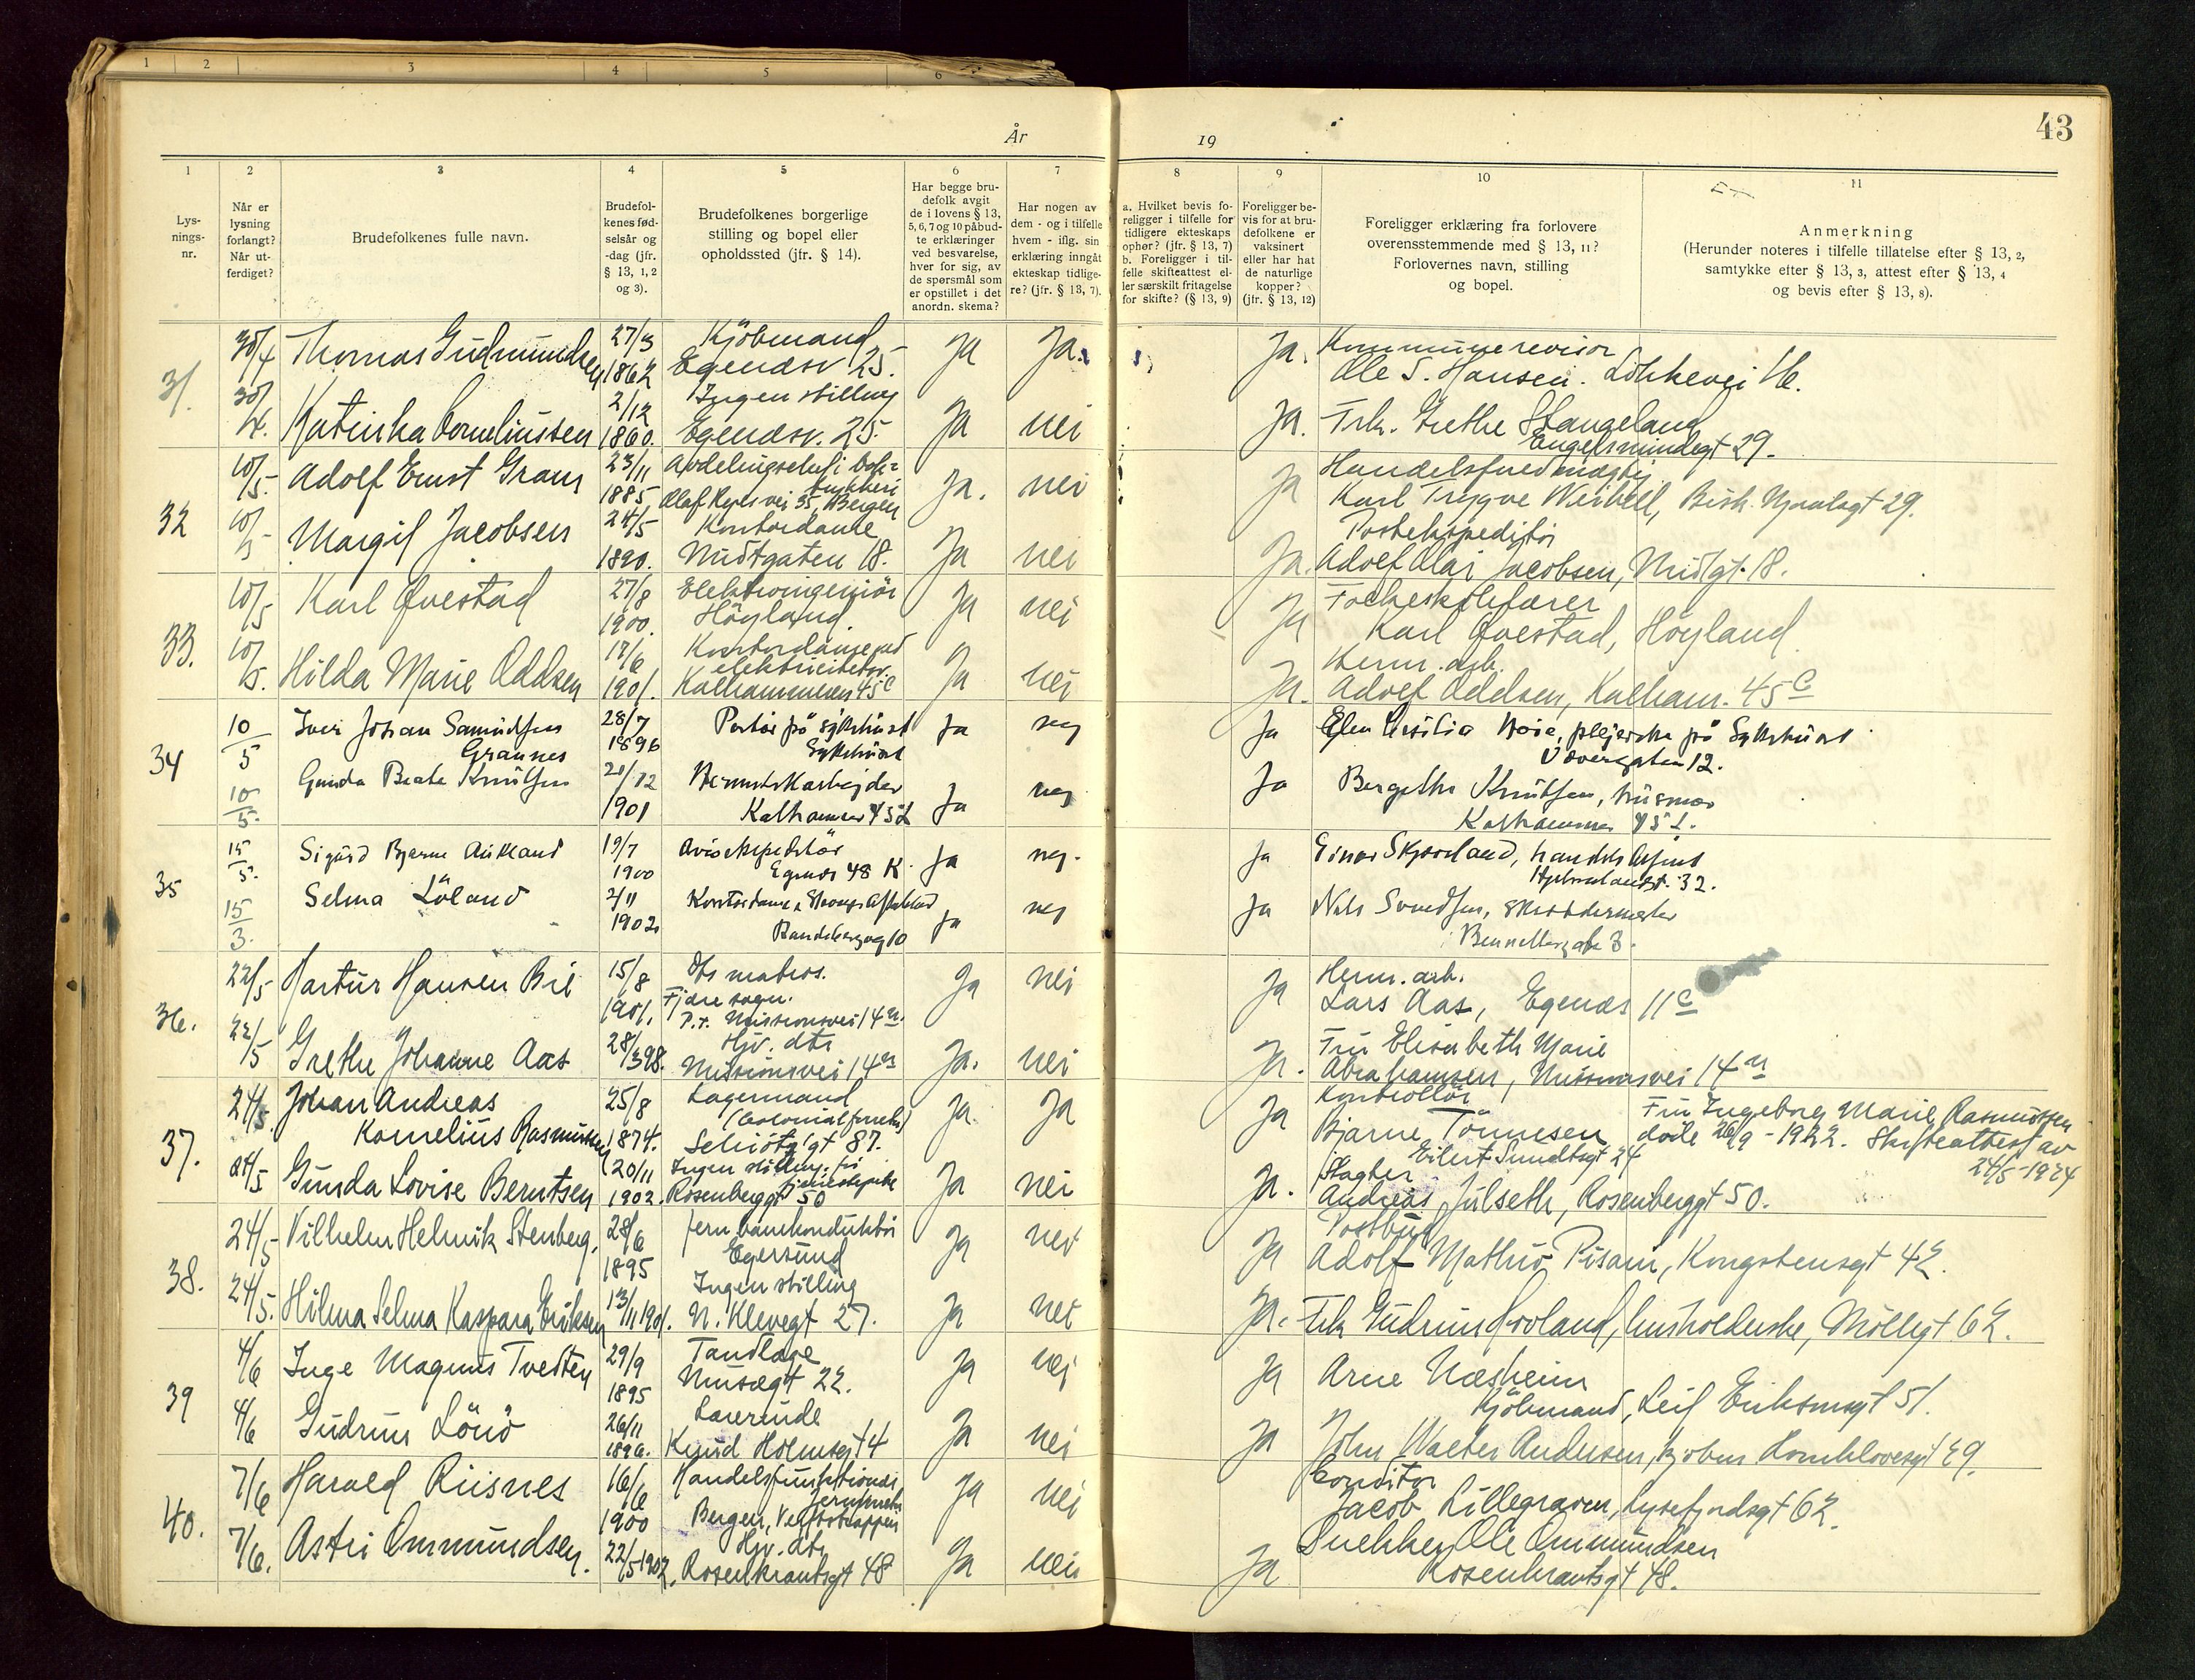 1 2 3 4 5 6
År 19
43
1 2 3 4 5 6 7 8 9 10 11
Lys-
nings-
nr.
Når er
lysning
forlangt?
Når ut-
ferdiget?
Brudefolkenes fulle navn.
Brudefol-
kenes fød-
selsår og
-dag (jfr.
§ 13, 1, 2
og 3).
Brudefolkenes borgerlige
stilling og bopel eller
opholdssted (jfr. § 14).
Har begge bru-
defolk avgit
de i lovens § 13,
5, 6, 7 og 10 påbud-
te erklæringer
ved besvarelse,
hver for sig, av
de spørsmål som
er opstillet i det
anordn. skema?
Har nogen av
dem - og i tilfelle
hvem - iflg. sin
erklæring inngåt
ekteskap tidlige-
re? (jfr. § 13, 7).
a. Hvilket bevis fo-
religger i tilfelle for
tidligere ekteskaps
ophør? (jfr. § 13, 7)
b. Foreligger i til-
felle skifteattest el-
ler særskilt fritagelse
for skifte? (§ 13, 9)
Foreligger be-
vis for at bru-
defolkene er
vaksinert
eller har hat
de naturlige
kopper?
(jfr. § 13, 12)
Foreligger erklæring fra forlovere
overensstemmende med § 13, 11?
Forlovernes navn, stilling
og bopel.
Anmerkning
(Herunder noteres i tilfelle tillatelse efter § 13, 2,
samtykke efter § 13, 3, attest efter § 13, 4
og bevis efter § 13, 8).
31.
30/4 Thomas Gudmundsen 27/3 1862 Kjöbmand Egenæsv 25. Ja Ja. Ja. Kommunerevisor
Ole S. Hansen. Lökkevei 16.
30/4. Katinka Corneliussen 2/12 1860. Ingen stilling Egenæsv. 25. Ja nei Ja. Frk. Grethe Stangeland
Engelsmindegt 29.
32
10/5. Adolf Ernst Gran 23/11 1885 Avdelingschef i bok=
trykkeri
Olaf Ryes vei 35, Bergen Ja. nei Ja Handelsfuldmægtig
Karl Trygve Weibell, 29.
10/5 Margit Jacobsen 24/5 1890. Kontordame Midtgaten 18. Ja nei Ja. Postekspeditör
Adolf Olai Jacobsen, Midtgt. 18.
33.
10/5 Karl Qvestad 27/8 1900. Elektroingeniör Höyland. Ja nei Ja Folkeskolelærer
Karl Qvestad, Höyland.
10/5. Hilda Marie Oddsen 1901. Kontordame ved
elektricitetsv.
Kalhammeren 45c Ja nei Ja. Herm. arb.
Adolf Oddsen, Kalham. 45c
34
10/5 Iver Johan Samuelsen
Grannes 28/7 1896 Portör på Sykehuset
Sykehuset Ja nej Ja
Ellen Cesilia Høie, plejerske på Sykehuset
12.
10/5. Gunda Beate Knutsen 21/12 1901 Hermetikarbejder
Kalhammer 45 Ja nej Ja Bergethe Knutsen, husmor
Kalhammer 45
35
15/5. Sigurd Bjarne Aukland 19/7 1900 Avisekspeditör
Egenæs 48 K. Ja nej. Ja Einar Skjæveland, handelsagent
32.
15/3. Selma Löland 2/11 1902. Kontordame i Stavanger Aftenblad
10 Ja nej Ja Nils Svendsen, skreddermester
3.
36.
22/5 Martin Hansen Bie 15/8 1901. Dts matros.
Fjære sogn.
P.t. Missionsvei 14 Ja nei Ja Herm. arb.
Lars Aas, Egenæs 11c
22/5 Grethe Johanne Aas 28/3 98. Hjv. dtr
Missionsvei 14 Ja. nei Ja. Fru Elisabeth Marie
Abrahamsen, Missionsvei 14
37.
24/5. Johan Andreas
Kornelius Rasmussen 25/8 1874. Lagermand
(Colonialforretn)
Schiötzgt 87. Ja Ja Ja Kontrollör
Bjarne Tönnesen
Eilert Sundtsgt 24
Fru Ingeborg Marie Rasmussen
döde 26/9 - 1922. Skifteattest av
24/5-1924
24/5 Gunda Lovise Berntsen 20/11 1902. Ingen stilling,
Rosenberggt 50 Ja nei Ja. Slagter
Andreas Julseth, Rosenberggt 50.
38.
24/5 Vilhelm Helmik Stenberg. 28/6 1895 Jernbanekonduktör
Egersund Ja nei Ja Postbud
Adolf Mathis Pisani, Kongstensgt 42.
24/5. Hilma Selma Kaspara Eriksen 13/11 1901. Ingen stilling
N. Klevegt 27. Ja nei Ja. Frk Gudrun Hovland, husholderske, Möllegt 62.
39
4/6 Inge Magnus Tvedten 29/9 1895 Tandlæge
Musægt 22. Ja nej Ja Arne Næsheim
Kjöbmand, Leif Eriksonsgt 51.
4/6 Gudrun Lönö 26/11 1896. Lærerinde
Knud Holmsgt 4 Ja nei Ja John Walter Andersen, kjøbm 49.
40.
7/6 Harald Risnes 16/6 1900 Handelsfunktionær
Jernforretn
Bergen, Ja nei Conditor
Jacob Lillegraven, Lysefjordsgt 62.
7/6. Astri Ommundsen. 22/5 1902. Hjv. dtr
Rosenkrantsgt 48 Ja nei Ja Snekker Ole Ommundsen
Rosenkrantsgt 48.